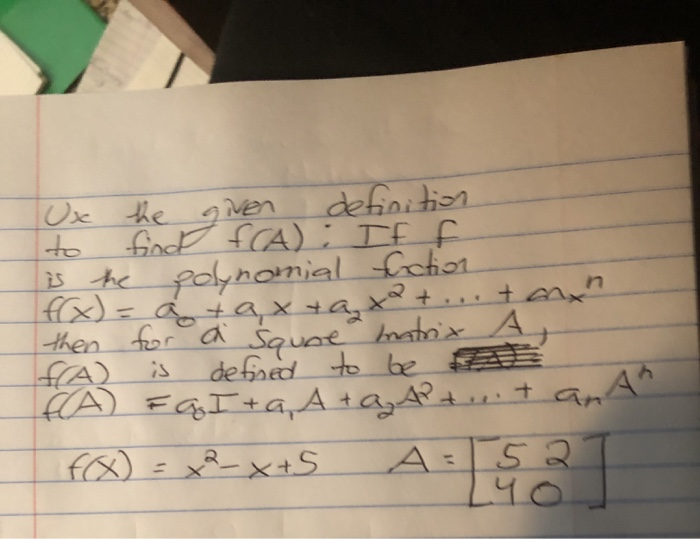 Use the given definition
to find f(A): If f
is the polynomial fuction
f(x) = a₀ + a₁x + a₂x² + ... + anxⁿ
then for a square matrix A,
f(A) is defined to be
f(A) = a₀I + a₁A + a₂A² + ... + aₙAⁿ
f(x) = x² - x + 5 A = [5 2
4 0]